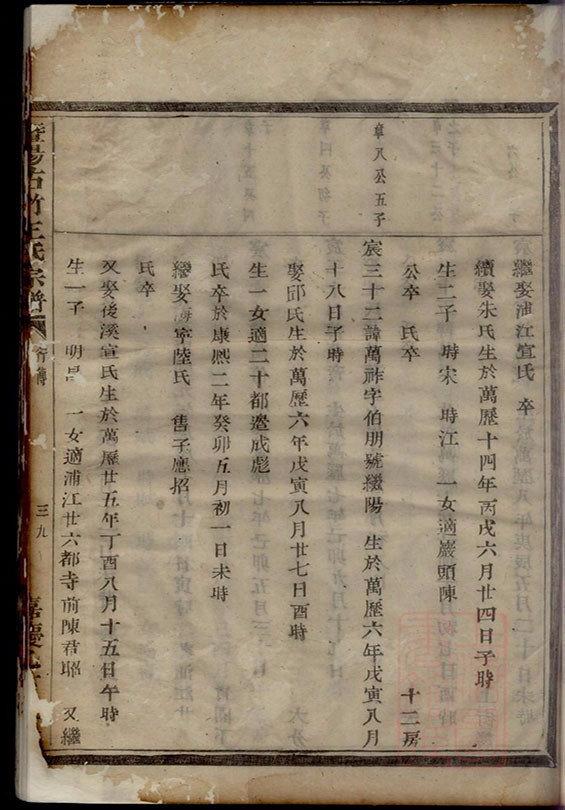 繼娶浦江宣氏 卒
續娶朱氏生於萬歷十四年丙戌六月廿四日子時
生二子 時宋 時江 一女適巖頭陳
公卒 氏卒 十二房
阜八公五子
宸三十二諱萬祚字伯朋號繼陽 生於萬歷六年戊寅八月
十八日子時
娶邱氏生於萬歷六年戊寅八月廿七日酉時
生一女適二十都邊成彪
氏卒於康熙二年癸卯五月初一日未時
繼娶海寧陸氏 售子應招
氏卒
又娶後溪宣氏生於萬歷廿五年丁酉八月十五日午時
生一子 明昌 一女適浦江廿六都寺前陳君聯 又繼
暨陽古竹王氏宗譜 行傳 三九 嘉慶